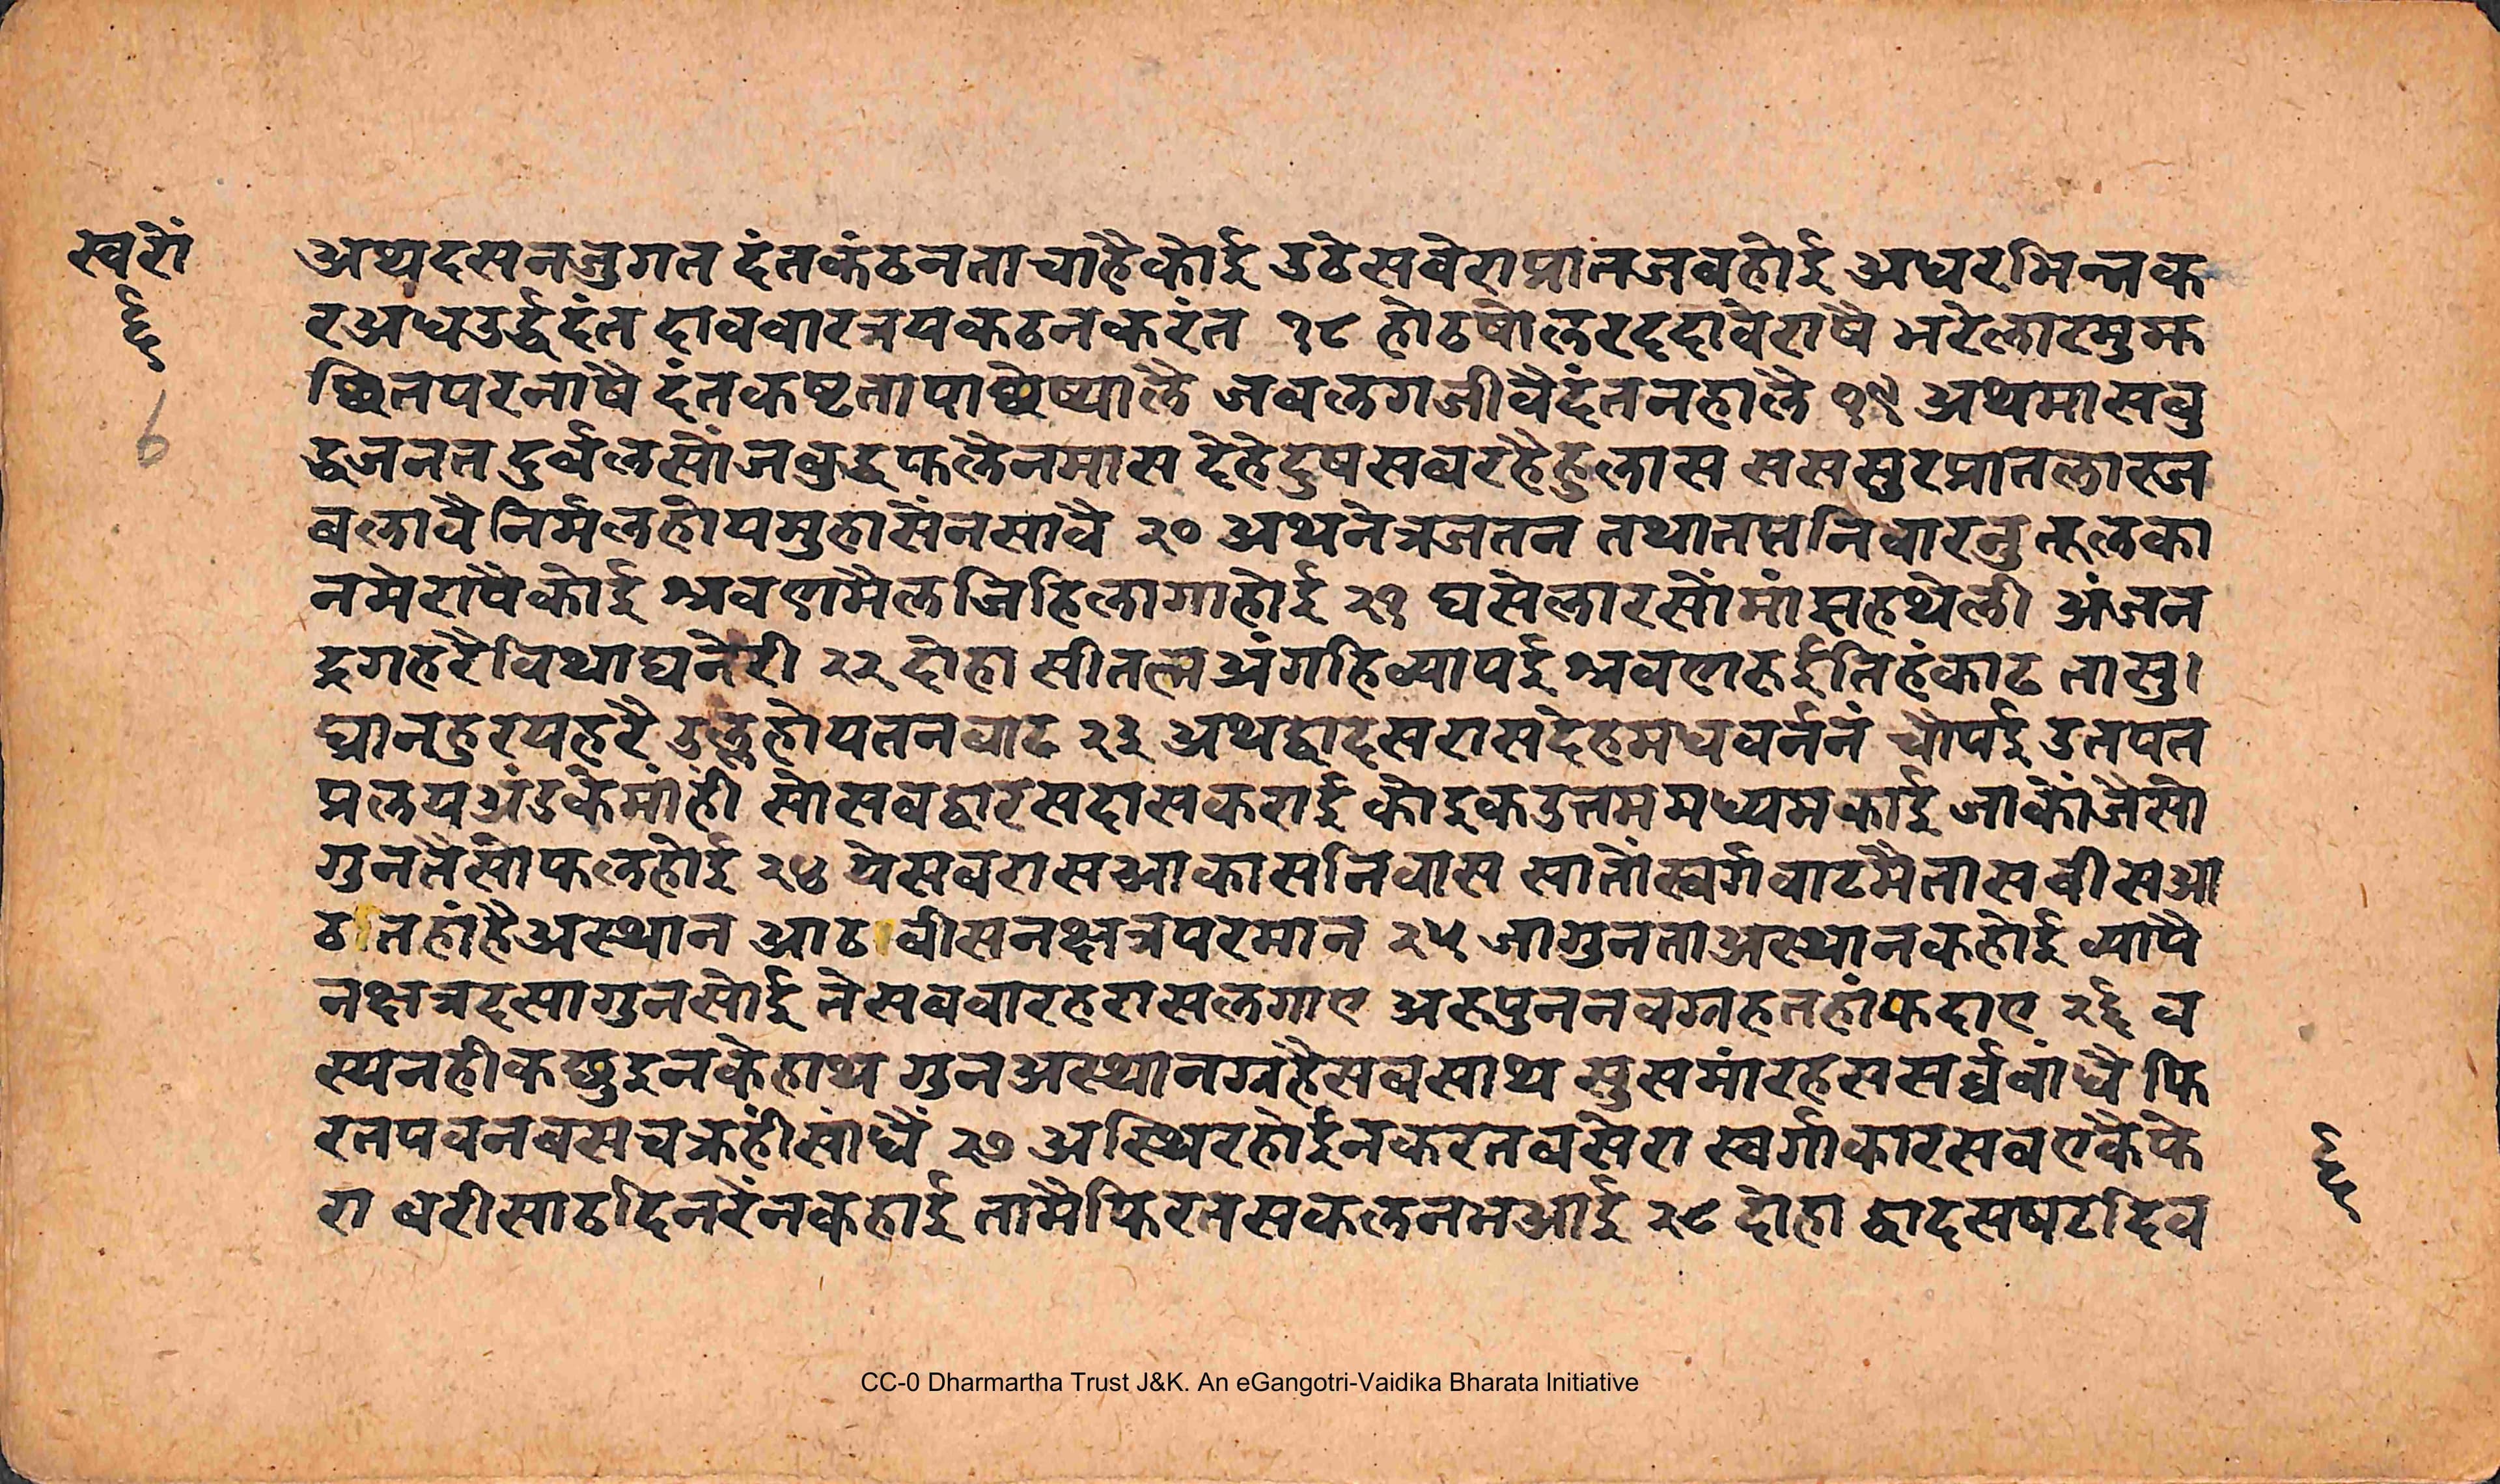 स्वरो
६
6
अथ दसन जुगत दंत कंठनता चाहै कोई उठे सवेरा प्रात जव होई अधर भिन्न क
र अध उर्द्ध दंत दाव वार त्रय कठन करंत १८ होठ षोल रद दावे राषै भरे लाट मुझ
थित पर नाषै दंत कष्ट ता पाछे ष्यालै जव लग जीवै दंत न हालै १९ अथ मास वृ
द्ध जनत दुर्वल सों ज वृद्ध फलै न मास देहे दुष सव रहै हुलास स स सुर प्रात लार ज
व लावै निर्मल होय मुहासें न सावै २० अथ नेत्र जतन तथा तप्त निवारनु तूल का
न मे राषै कोई श्रवण मैल जिहि लागा होई २१ घसे लार सों मांझ हथेली अंजन
द्रग हरै विथा घनेरी २२ दोहा सीतल्म अंगहि व्यापई श्रवण रुई तिहं काढ तासु।
घ्रान हु रय हरै उल्लु होय तन वाढ २३ अथ द्वादस रास देह मध वर्ननं चौपई उतपत
प्रलय अंड के मांही सो सव द्वार सदा सकराई कोइक उत्तम मध्यम काई जाकों जैसो
गुन तैसो फल होई २४ ये सव रास आकास निवास सातों स्वर्ग वाट मै तास वीस आ
ठ तहां है अस्थान आठ वीस नक्षत्र परमान २५ जा गुन ता अस्थानक होई व्यापै
नक्षत्र दसा गुन सोई ते सव वारह रास लगाए अरु पुन नवग्रह तहां फदाए २६ व
स्य नही कछु इनके हाथ गुन अस्थान ग्रहै सव साथ सुसमांर हस सर्व्व वांधै फि
रत पवन वस चक्रहीं सांधैं २७ अस्थिर होई न करत वसेरा स्वर्गाकार सव एकै फे
रा धरी साठ दिन रेंन कहाई तामै फिरत सकल नभ आई २८ दोहा द्वादस षट दिव
६
CC-0 Dharmartha Trust J&K. An eGangotri-Vaidika Bharata Initiative